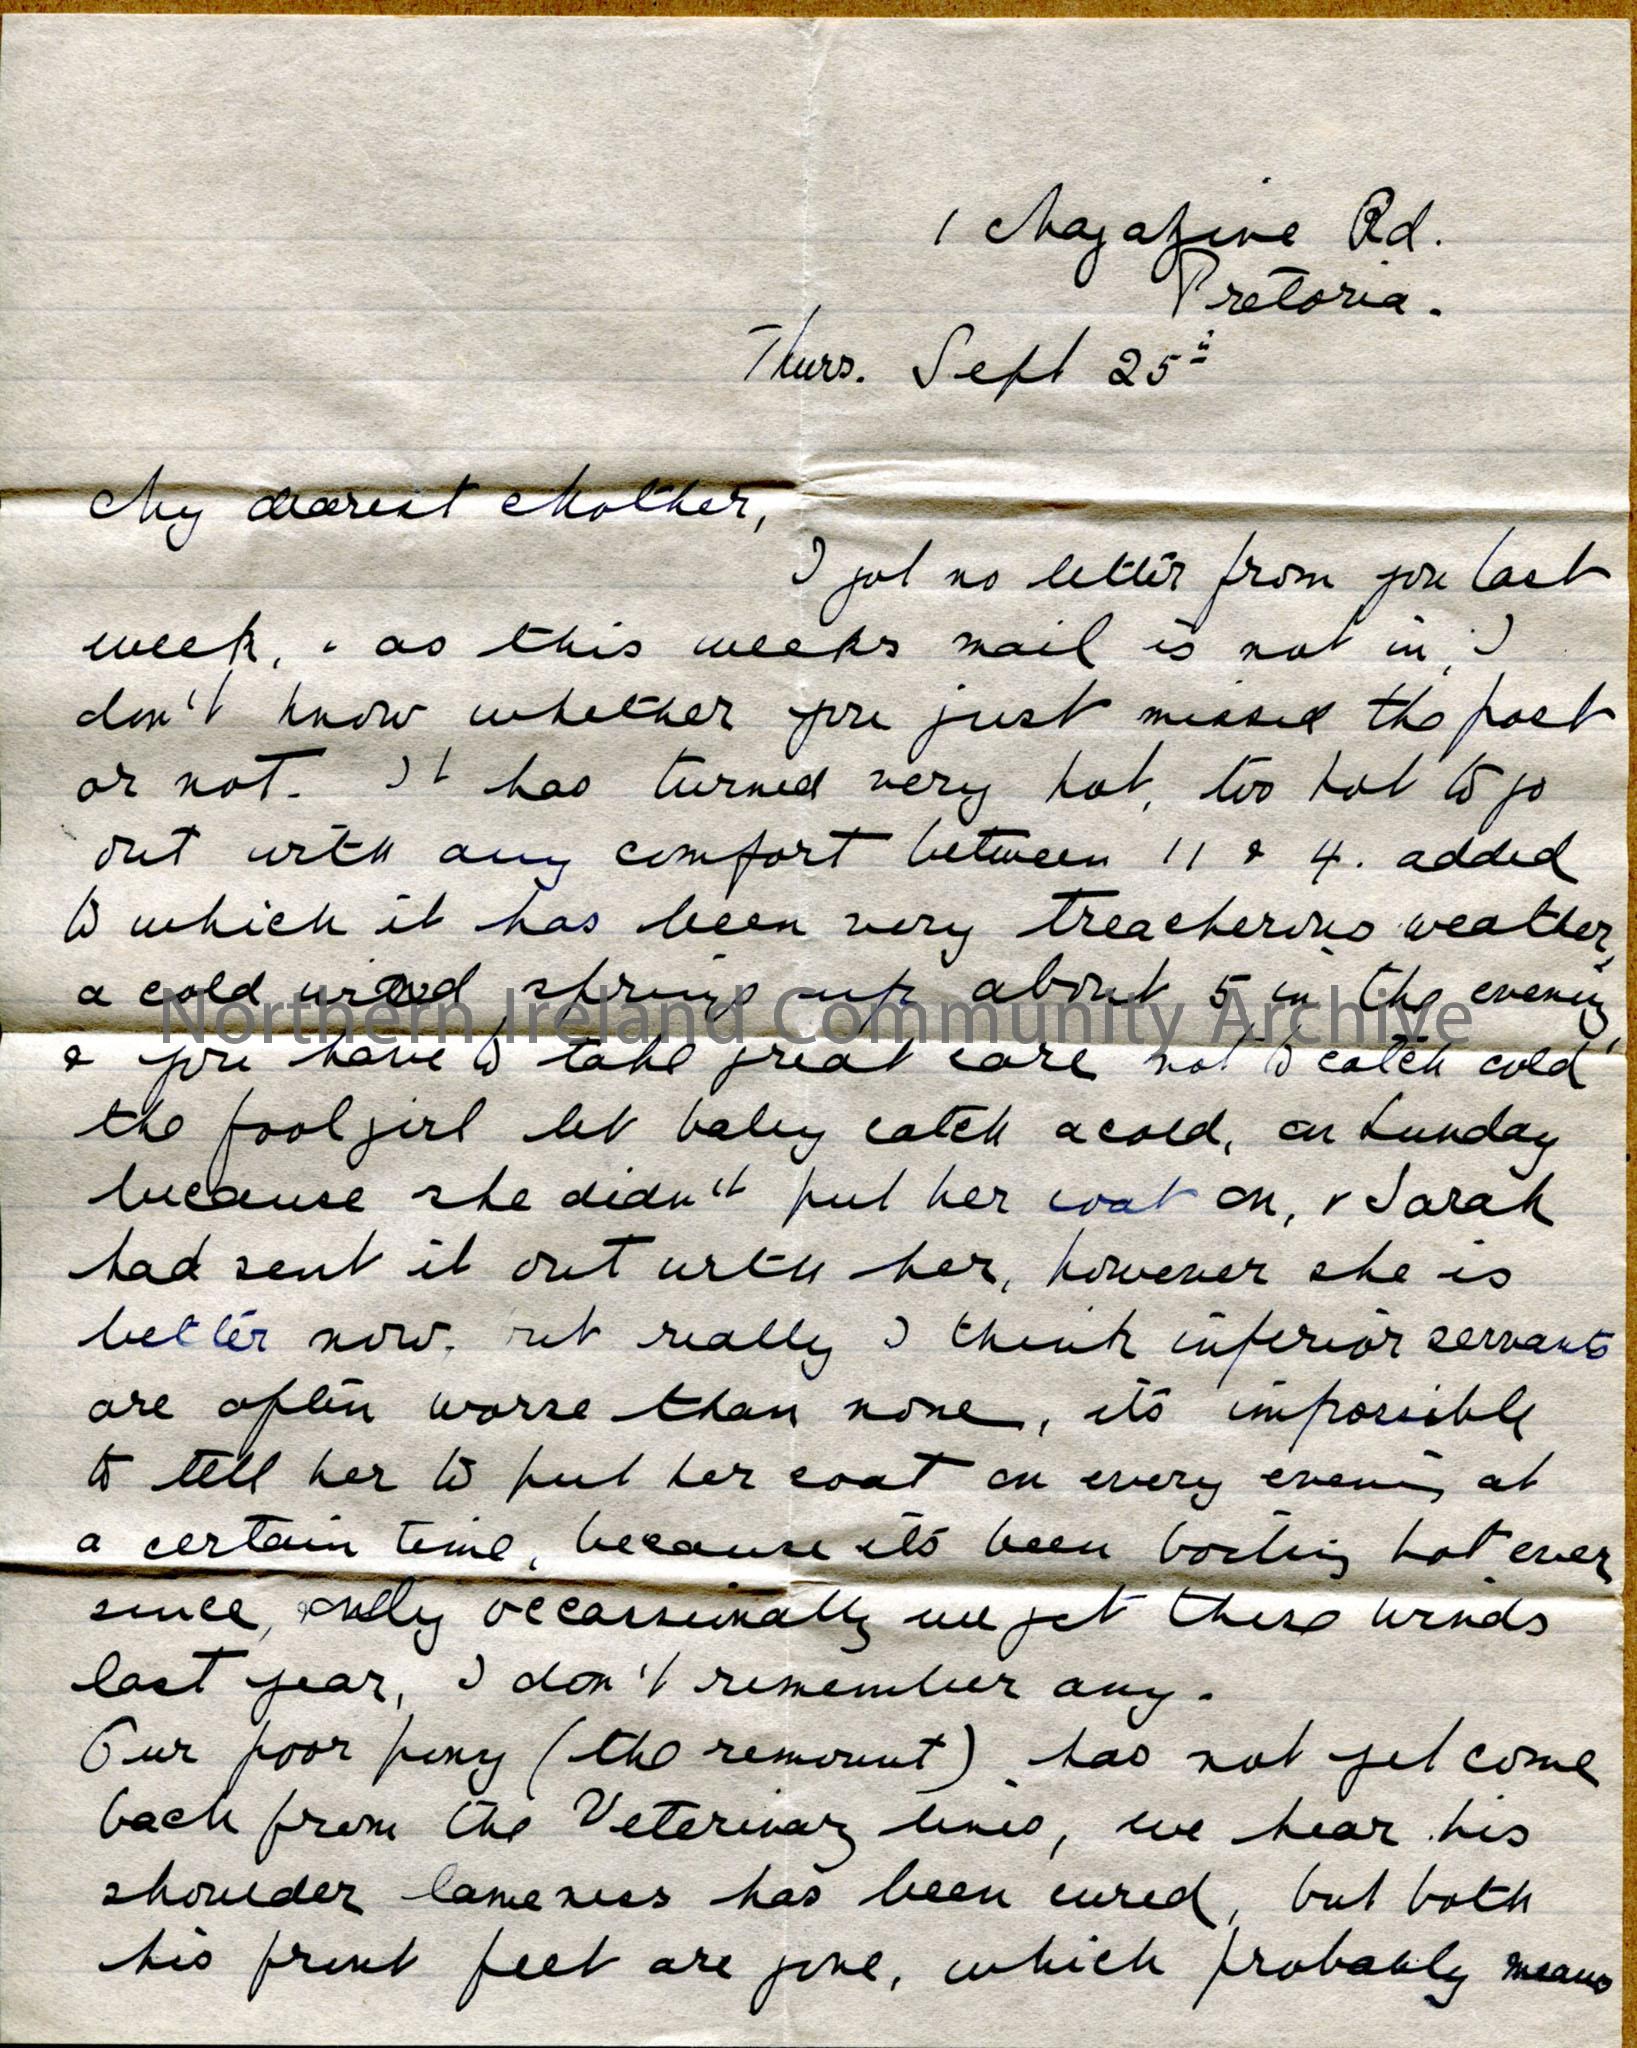 1 Magazine Rd.
Pretoria.
Thurs. Sept 25th
My dearest Mother,
I got no letter from you last
week, & as this weeks mail is not in, I
don't know whether you just missed the post
or not. It has turned very hot, too hot to go
out with any comfort between 11 & 4. added
to which it has been very treacherous weather,
a cold wind springs up about 5 in the evening,
Northern Ireland Community Archive
& you have to take great care not to catch cold,
the fool girl let baby catch a cold, on Sunday
because she didn't put her coat on, & Sarah
had sent it out with her, however she is
better now, but really I think inferior servants
are often worse than none, its impossible
to tell her to put her coat on every evening at
a certain time, because its been boiling hot ever
since, only occassionally we get these winds
last year, I don't remember any.
Our poor pony (the remount) has not yet come
back from the Veterinary lines, we hear his
shoulder lameness has been cured, but both
his front feet are gone, which probably means